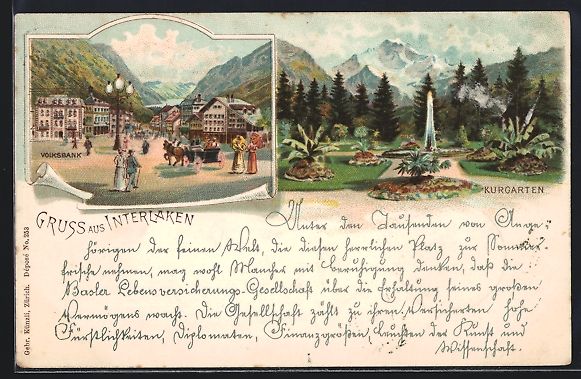 VOLKSBANK
KURGARTEN
GRUSS AUS INTERLAKEN
Unter den Tausenden von Ange-
hörigen der feinen Welt, die diesen herrlichen Platz zur Sommer-
frische nehmen, mag wohl Mancher mit Beruhigung denken, daß die
Basler Lebensversicherungs-Gesellschaft über die Erhaltung seines großen
Vermögens wacht. Die Gesellschaft zählt zu ihren Versicherten hohe
Fürstlichkeiten, Diplomaten, Finanzgrößen, Leuchten der Kunst und
Wissenschaft.
Gebr. Künzli, Zürich. Déposé No. 253